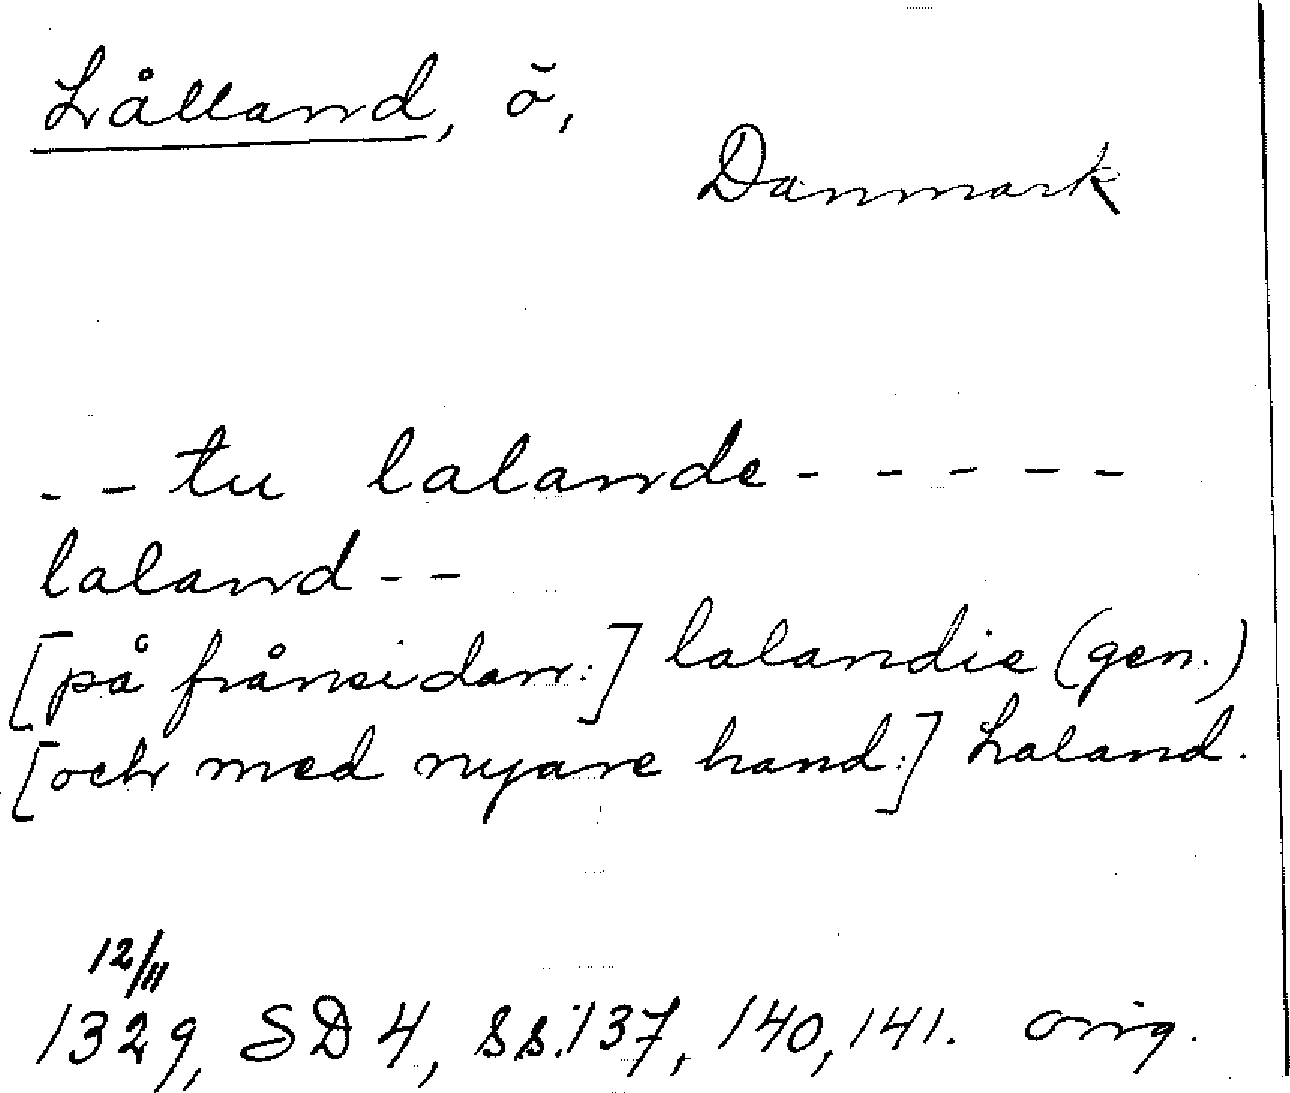 Lålland, ö,
Danmark
- - tu lalande - - - - -
laland - -
[på frånsidan:] lalandie (gen.)
[och med nyare hand:] Laland.
12/11
1329, SD 4, ss. 137, 140, 141. orig.